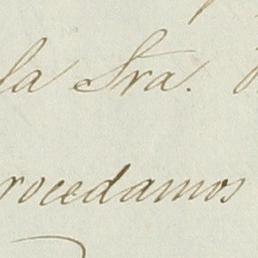 la Sra.
rocedamos